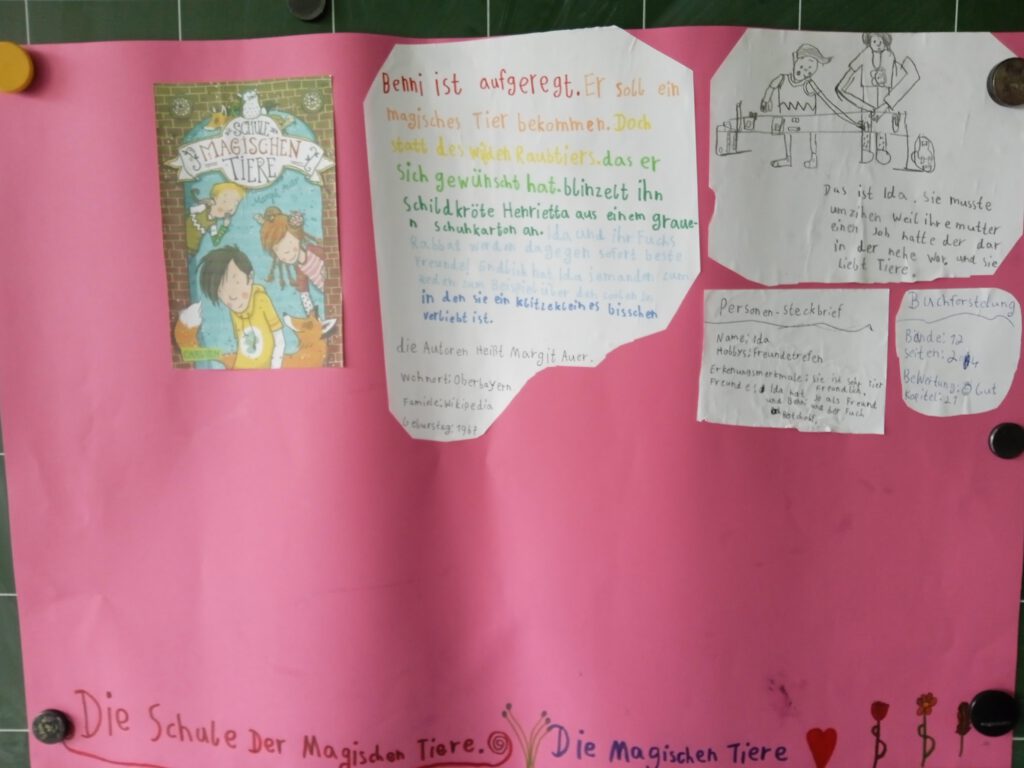 SCHULE
MAGISCHEN
TIERE
Margit Auer
CARLSEN
Benni ist aufgeregt. Er soll ein
magisches Tier bekommen. Doch
statt des wilden Raubtiers. das er
sich gewünscht hat. blinzelt ihn
Schildkröte Henrietta aus einem graue-
n Schuhkarton an. Ida und ihr Fuchs
Rabbat werden dagegen sofort beste
Freunde! Endlich hat Ida jemanden zum
reden zum Beispiel über den coolen Jo
in den sie ein klitzekleines bisschen
verliebt ist.
die Autoren Heißt Margit Auer.
Wohnort: Oberbayern
Famiele: Wikipedia
Geburstag: 1967
Das ist Ida. Sie musste
umzihen Weil ihre mutter
einen Job hatte der dar
in der nehe war und sie
liebt Tiere.
Personen-Steckbrief
Name: Ida
Hobbys: Freundetrefen
Erkenungsmerkmale: sie ist sehr tier
Freundlich.
Freunde: Ida hat Jo als Freund
und Benni und der Fuch
Buchforstelung
Bände: 12
Seiten:
Bewertung: Gut
Kapitel: 21
Die Schule Der Magischen Tiere.
Die Magischen Tiere